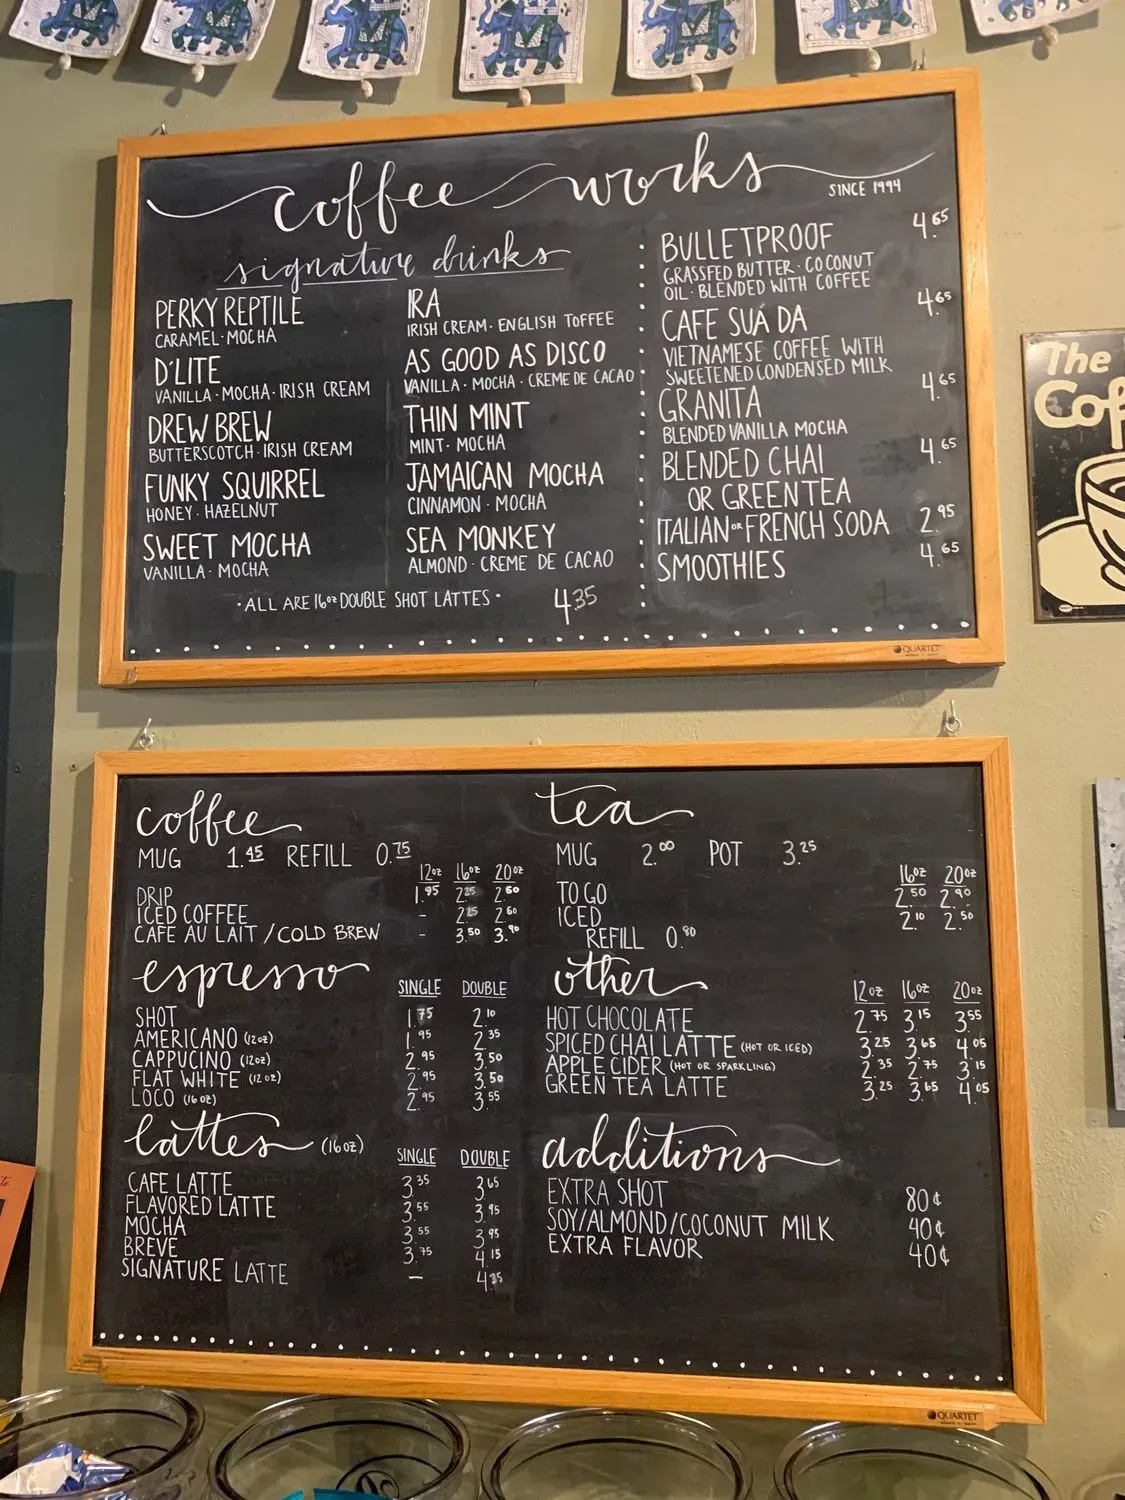 coffee works
SINCE 1994
signature drinks
PERKY REPTILE
CARAMEL · MOCHA
D'LITE
VANILLA · MOCHA · IRISH CREAM
DREW BREW
BUTTERSCOTCH · IRISH CREAM
FUNKY SQUIRREL
HONEY · HAZELNUT
SWEET MOCHA
VANILLA · MOCHA
IRA
IRISH CREAM · ENGLISH TOFFEE
AS GOOD AS DISCO
VANILLA · MOCHA · CREME DE CACAO
THIN MINT
MINT · MOCHA
JAMAICAN MOCHA
CINNAMON · MOCHA
SEA MONKEY
ALMOND · CREME DE CACAO
· ALL ARE 16oz DOUBLE SHOT LATTES · 4.35
BULLETPROOF 4.65
GRASSFED BUTTER · COCONUT
OIL · BLENDED WITH COFFEE
CAFE SUÁ DA 4.65
VIETNAMESE COFFEE WITH
SWEETENED CONDENSED MILK
GRANITA 4.65
BLENDED VANILLA MOCHA
BLENDED CHAI 4.65
OR GREEN TEA
ITALIAN OR FRENCH SODA 2.95
SMOOTHIES 4.65
QUARTET
The
coffee
MUG 1.45 REFILL 0.75
12oz 16oz 20oz
DRIP 1.95 2.25 2.60
ICED COFFEE - 2.25 2.60
CAFE AU LAIT / COLD BREW - 3.50 3.90
espresso
SINGLE DOUBLE
SHOT 1.75 2.10
AMERICANO (12oz) 1.95 2.35
CAPPUCINO (12oz) 2.95 3.50
FLAT WHITE (12oz) 2.95 3.50
LOCO (16oz) 2.95 3.55
lattes (16oz)
SINGLE DOUBLE
CAFE LATTE 3.35 3.65
FLAVORED LATTE 3.55 3.95
MOCHA 3.55 3.95
BREVE 3.75 4.15
SIGNATURE LATTE - 4.35
tea
MUG 2.00 POT 3.25
16oz 20oz
TO GO 2.50 2.90
ICED 2.10 2.50
REFILL 0.80
other
12oz 16oz 20oz
HOT CHOCOLATE 2.75 3.15 3.55
SPICED CHAI LATTE (HOT OR ICED) 3.25 3.65 4.05
APPLE CIDER (HOT OR SPARKLING) 2.35 2.75 3.15
GREEN TEA LATTE 3.25 3.65 4.05
additions
EXTRA SHOT 80¢
SOY/ALMOND/COCONUT MILK 40¢
EXTRA FLAVOR 40¢
QUARTET